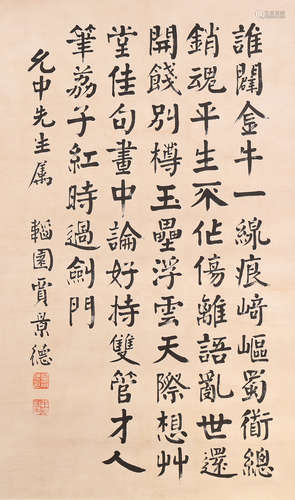 誰闢金牛一線痕崎嶇蜀衜總
銷魂平生不佔傷離語亂世還
開餞別樽玉壘浮雲天際想艸
堂佳句畫中論好持雙管才人
筆荔子紅時過劍門
允中先生属
韜園賈景德